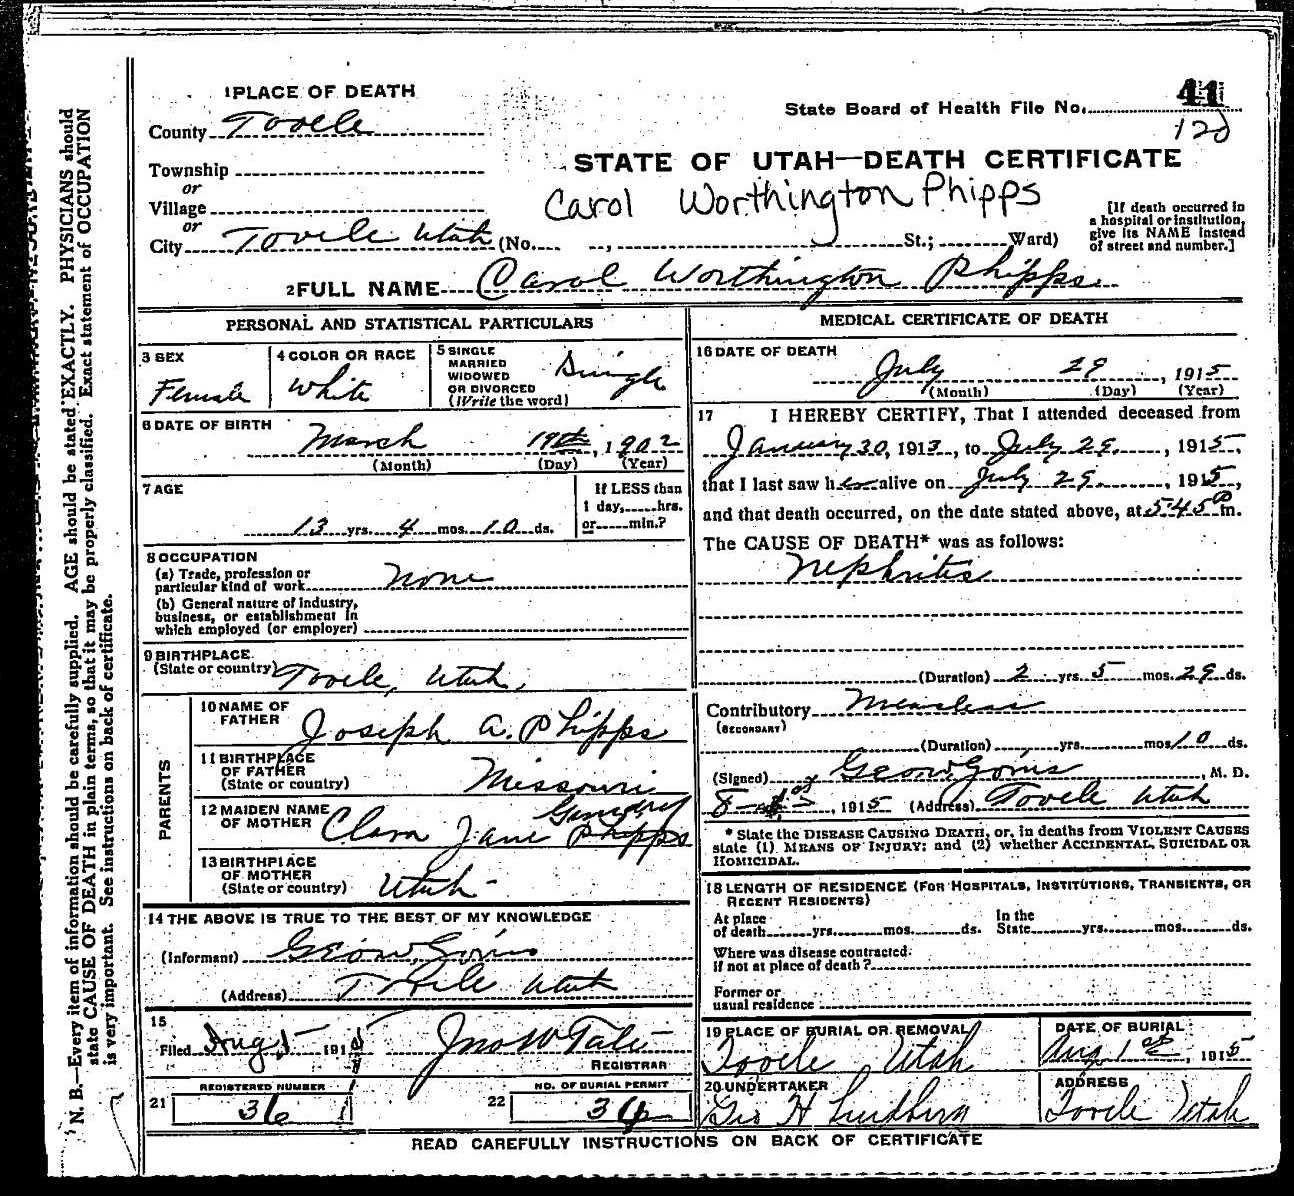 1 PLACE OF DEATH
County Tooele
Township
or
Village
or
City Tooele Utah (No. , St.; Ward)
State Board of Health File No. 41
120
STATE OF UTAH—DEATH CERTIFICATE
Carol Worthington Phipps
[If death occurred in
a hospital or institution,
give its NAME instead
of street and number.]
2 FULL NAME Carol Worthington Phipps.
PERSONAL AND STATISTICAL PARTICULARS
3 SEX
Female
4 COLOR OR RACE
White
5 SINGLE
MARRIED
WIDOWED
OR DIVORCED
(Write the word)
Single
6 DATE OF BIRTH
March 19th, 1902
(Month) (Day) (Year)
7 AGE
13 yrs. 4 mos. 10 ds.
If LESS than
1 day, hrs.
or min.?
8 OCCUPATION
(a) Trade, profession or
particular kind of work none
(b) General nature of industry,
business, or establishment in
which employed (or employer)
9 BIRTHPLACE
(State or country) Tooele, Utah,
PARENTS
10 NAME OF
FATHER Joseph A. Phipps
11 BIRTHPLACE
OF FATHER
(State or country) Missouri
12 MAIDEN NAME
OF MOTHER Clara Jane Phipps
13 BIRTHPLACE
OF MOTHER
(State or country) Utah
14 THE ABOVE IS TRUE TO THE BEST OF MY KNOWLEDGE
(Informant) Geo W.
(Address) Tooele Utah
15
Filed Aug 1915 Jno W Tate
REGISTRAR
REGISTERED NUMBER
21 36
NO. OF BURIAL PERMIT
22 36
MEDICAL CERTIFICATE OF DEATH
16 DATE OF DEATH
July 29, 1915
(Month) (Day) (Year)
17 I HEREBY CERTIFY, That I attended deceased from
January 30, 1913, to July 29, 1915,
that I last saw her alive on July 29, 1915,
and that death occurred, on the date stated above, at 5:45 P m.
The CAUSE OF DEATH* was as follows:
Nephritis
(Duration) 2 yrs. 5 mos. 29 ds.
Contributory Measles
(SECONDARY)
(Duration) yrs. mos 10 ds.
(Signed) Geo W. , M. D.
8 1915 (Address) Tooele Utah
* State the DISEASE CAUSING DEATH, or, in deaths from VIOLENT CAUSES
state (1) MEANS OF INJURY; and (2) whether ACCIDENTAL, SUICIDAL OR
HOMICIDAL.
18 LENGTH OF RESIDENCE (FOR HOSPITALS, INSTITUTIONS, TRANSIENTS, OR
RECENT RESIDENTS)
At place
of death yrs. mos. ds.
In the
State yrs. mos. ds.
Where was disease contracted.
If not at place of death?
Former or
usual residence
19 PLACE OF BURIAL OR REMOVAL
Tooele Utah
DATE OF BURIAL
Aug 1st, 1915
20 UNDERTAKER
Geo H Lundberg
ADDRESS
Tooele Utah
READ CAREFULLY INSTRUCTIONS ON BACK OF CERTIFICATE
N. B.—Every item of information should be carefully supplied. AGE should be stated EXACTLY. PHYSICIANS should
state CAUSE OF DEATH in plain terms, so that it may be properly classified. Exact statement of OCCUPATION
is very important. See instructions on back of certificate.